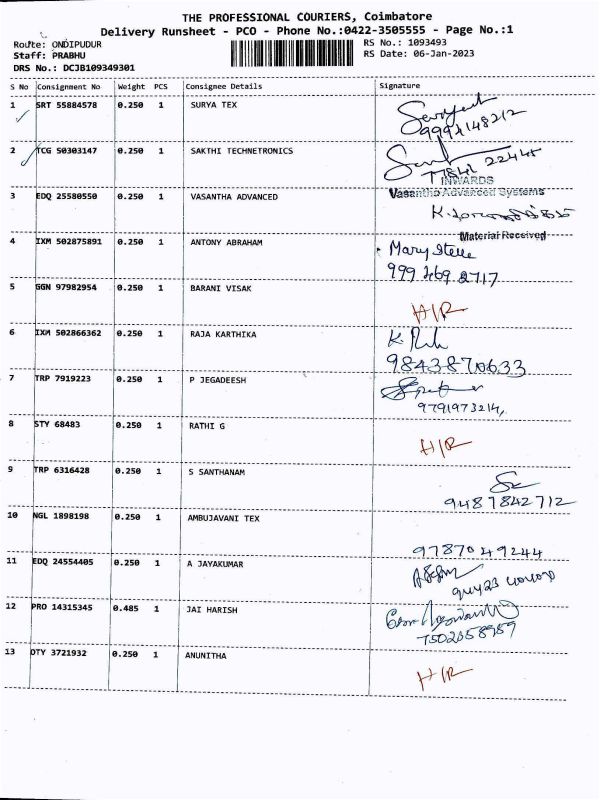 THE PROFESSIONAL COURIERS, Coimbatore
Delivery Runsheet - PCO - Phone No.:0422-3505555 - Page No.:1
Route: ONDIPUDUR RS No.: 1093493
Staff: PRABHU RS Date: 06-Jan-2023
DRS No.: DCJB109349301
S No Consignment No Weight PCS Consignee Details Signature
1 SRT 55884578 0.250 1 SURYA TEX
9994148212
2 TCG 50303147 0.250 1 SAKTHI TECHNETRONICS
22445
INWARDS
3 EDQ 25580550 0.250 1 VASANTHA ADVANCED Vasantha Advanced Systems
Material Received
4 IXM 502875891 0.250 1 ANTONY ABRAHAM Mary Stelle
999 469 2717
5 GGN 97982954 0.250 1 BARANI VISAK
H/R
6 IXM 502866362 0.250 1 RAJA KARTHIKA K.
9843870633
7 TRP 7919223 0.250 1 P JEGADEESH
9791973214,
8 STY 68483 0.250 1 RATHI G
H/R
9 TRP 6316428 0.250 1 S SANTHANAM
9487842712
10 NGL 1898198 0.250 1 AMBUJAVANI TEX
9787049244
11 EDQ 24554405 0.250 1 A JAYAKUMAR
12 PRO 14315345 0.485 1 JAI HARISH
7502658959
13 OTY 3721932 0.250 1 ANUNITHA
H/R